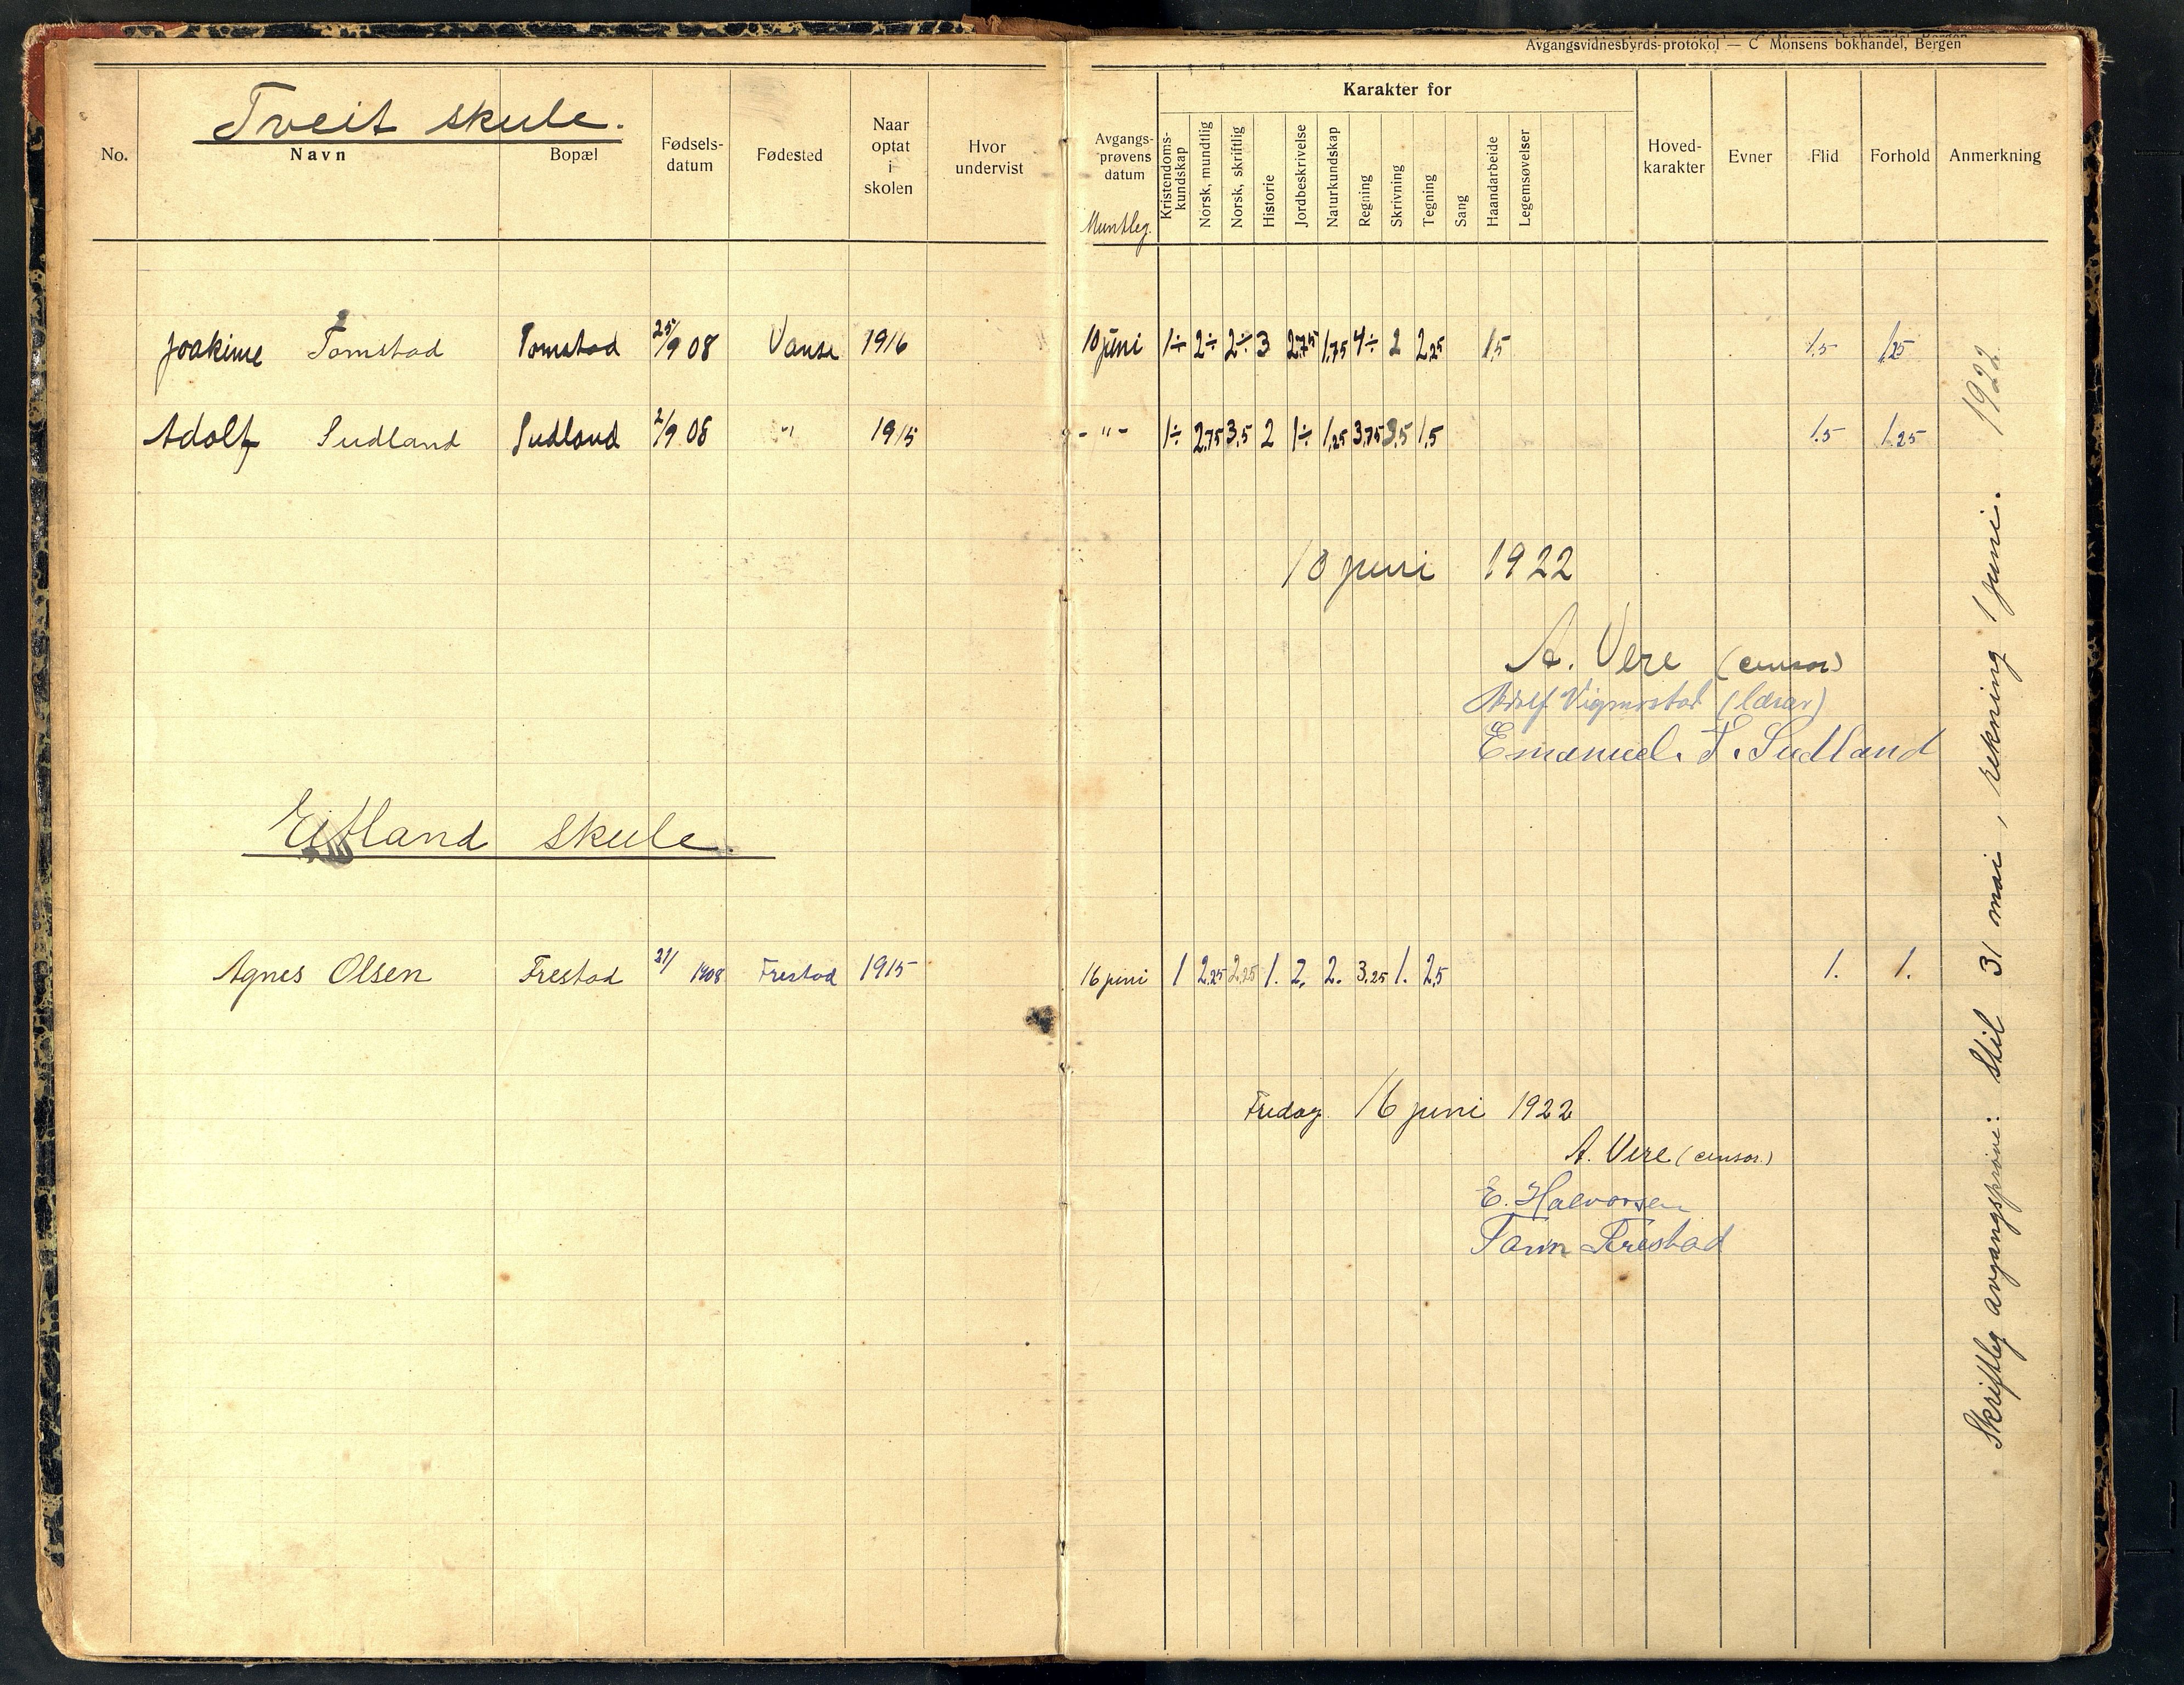 Avgangsvidnesbyrds-protokol — C Monsens bokhandel, Bergen
Tveit skule.
No.
Navn
Bopæl
Fødsels-
datum
Fødested
Naar
optat
i
skolen
Hvor
undervist
Avgangs-
prøvens
datum
Muntleg.
Karakter for
Kristendoms-
kundskap
Norsk, mundtlig
Norsk, skriftlig
Historie
Jordbeskrivelse
Naturkundskap
Regning
Skrivning
Tegning
Sang
Haandarbeide
Legemsøvelser
Hoved-
karakter
Evner
Flid
Forhold
Anmerkning
Joakime Tomstad Tomstad 25/9 08 Vanse 1916 10 juni 1÷ 2÷ 2÷ 3 2.75 1.75 4÷ 2 2.25 1.5 1.5 1.25
Adolf Sudland Sudland 2/9 08 " 1915 - " - 1÷ 2.75 3.5 2 1÷ 1.25 3.75 3.5 1.5 1.5 1.25
10 juni 1922
A. Vere (censor)
Adolf Vigmostad (lærar)
Emanuel. T. Sudland
Eitland skule.
Agnes Olsen Frestad 21/ 1908 Frestad 1915 16 juni 1 2.25 2.25 1. 2. 2. 3.25 1. 2.5 1. 1.
Fredag. 16 juni 1922
A. Vere (censor.)
E. Halvorsen
Frestad
Skriftleg avgangsprøve: Stil 31 mai, rekning 1 juni. 1922